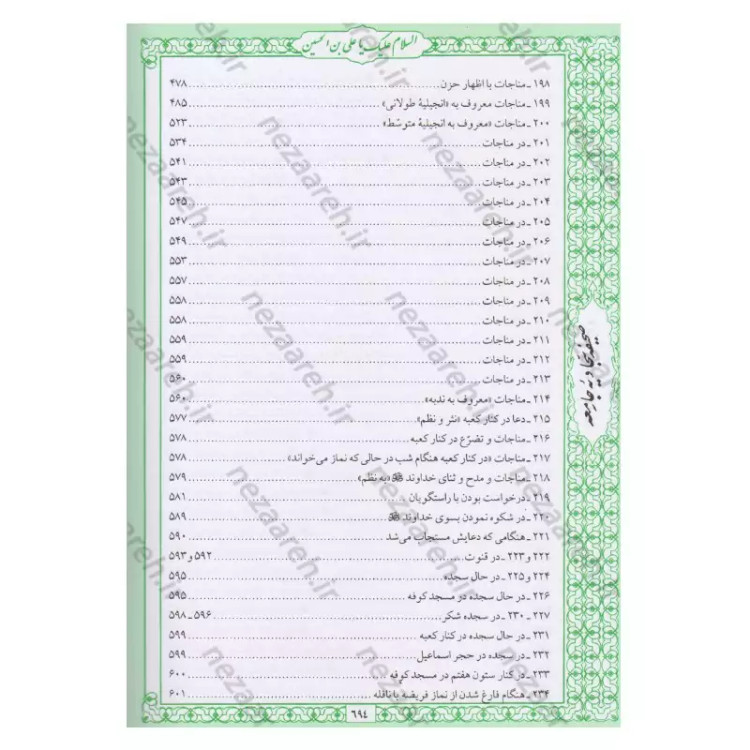 السلام علیک یا علی بن الحسین
۱۹۸ ـ مناجات با اظهار حزن ... ۴۷۸
۱۹۹ ـ مناجات معروف به «انجیلیهٔ طولانی» ... ۴۸۵
۲۰۰ ـ مناجات «معروف به انجیلیهٔ متوسّط» ... ۵۲۳
۲۰۱ ـ در مناجات ... ۵۳۴
۲۰۲ ـ در مناجات ... ۵۴۱
۲۰۳ ـ در مناجات ... ۵۴۳
۲۰۴ ـ در مناجات ... ۵۴۵
۲۰۵ ـ در مناجات ... ۵۴۷
۲۰۶ ـ در مناجات ... ۵۴۹
۲۰۷ ـ در مناجات ... ۵۵۳
۲۰۸ ـ در مناجات ... ۵۵۷
۲۰۹ ـ در مناجات ... ۵۵۸
۲۱۰ ـ در مناجات ... ۵۵۸
۲۱۱ ـ در مناجات ... ۵۵۹
۲۱۲ ـ در مناجات ... ۵۵۹
۲۱۳ ـ در مناجات ... ۵۶۰
۲۱۴ ـ مناجات «معروف به ندبه» ... ۵۶۰
۲۱۵ ـ دعا در کنار کعبه «نثر و نظم» ... ۵۷۷
۲۱۶ ـ مناجات و تضرّع در کنار کعبه ... ۵۷۸
۲۱۷ ـ مناجات «در کنار کعبه هنگام شب در حالی که نماز می‌خواند» ... ۵۷۸
۲۱۸ ـ مناجات و مدح و ثنای خداوند «به نظم» ... ۵۷۹
۲۱۹ ـ درخواست بودن با راستگویان ... ۵۸۱
۲۲۰ ـ در شکوه نمودن بسوی خداوند ... ۵۸۹
۲۲۱ ـ هنگامی که دعایش مستجاب می‌شد ... ۵۹۰
۲۲۲ و ۲۲۳ ـ در قنوت ... ۵۹۲ و ۵۹۳
۲۲۴ و ۲۲۵ ـ در حال سجده ... ۵۹۵
۲۲۶ ـ در حال سجده در مسجد کوفه ... ۵۹۵
۲۲۷ ـ ۲۳۰ ـ در سجده شکر ... ۵۹۶ ـ ۵۹۸
۲۳۱ ـ در حال سجده در کنار کعبه ... ۵۹۹
۲۳۲ ـ در سجده در حجر اسماعیل ... ۵۹۹
۲۳۳ ـ در کنار ستون هفتم در مسجد کوفه ... ۶۰۰
۲۳۴ ـ هنگام فارغ شدن از نماز فریضه یا نافله ... ۶۰۱
صحیفه سجادیه جامعه
۶۹۴
nezaareh.ir